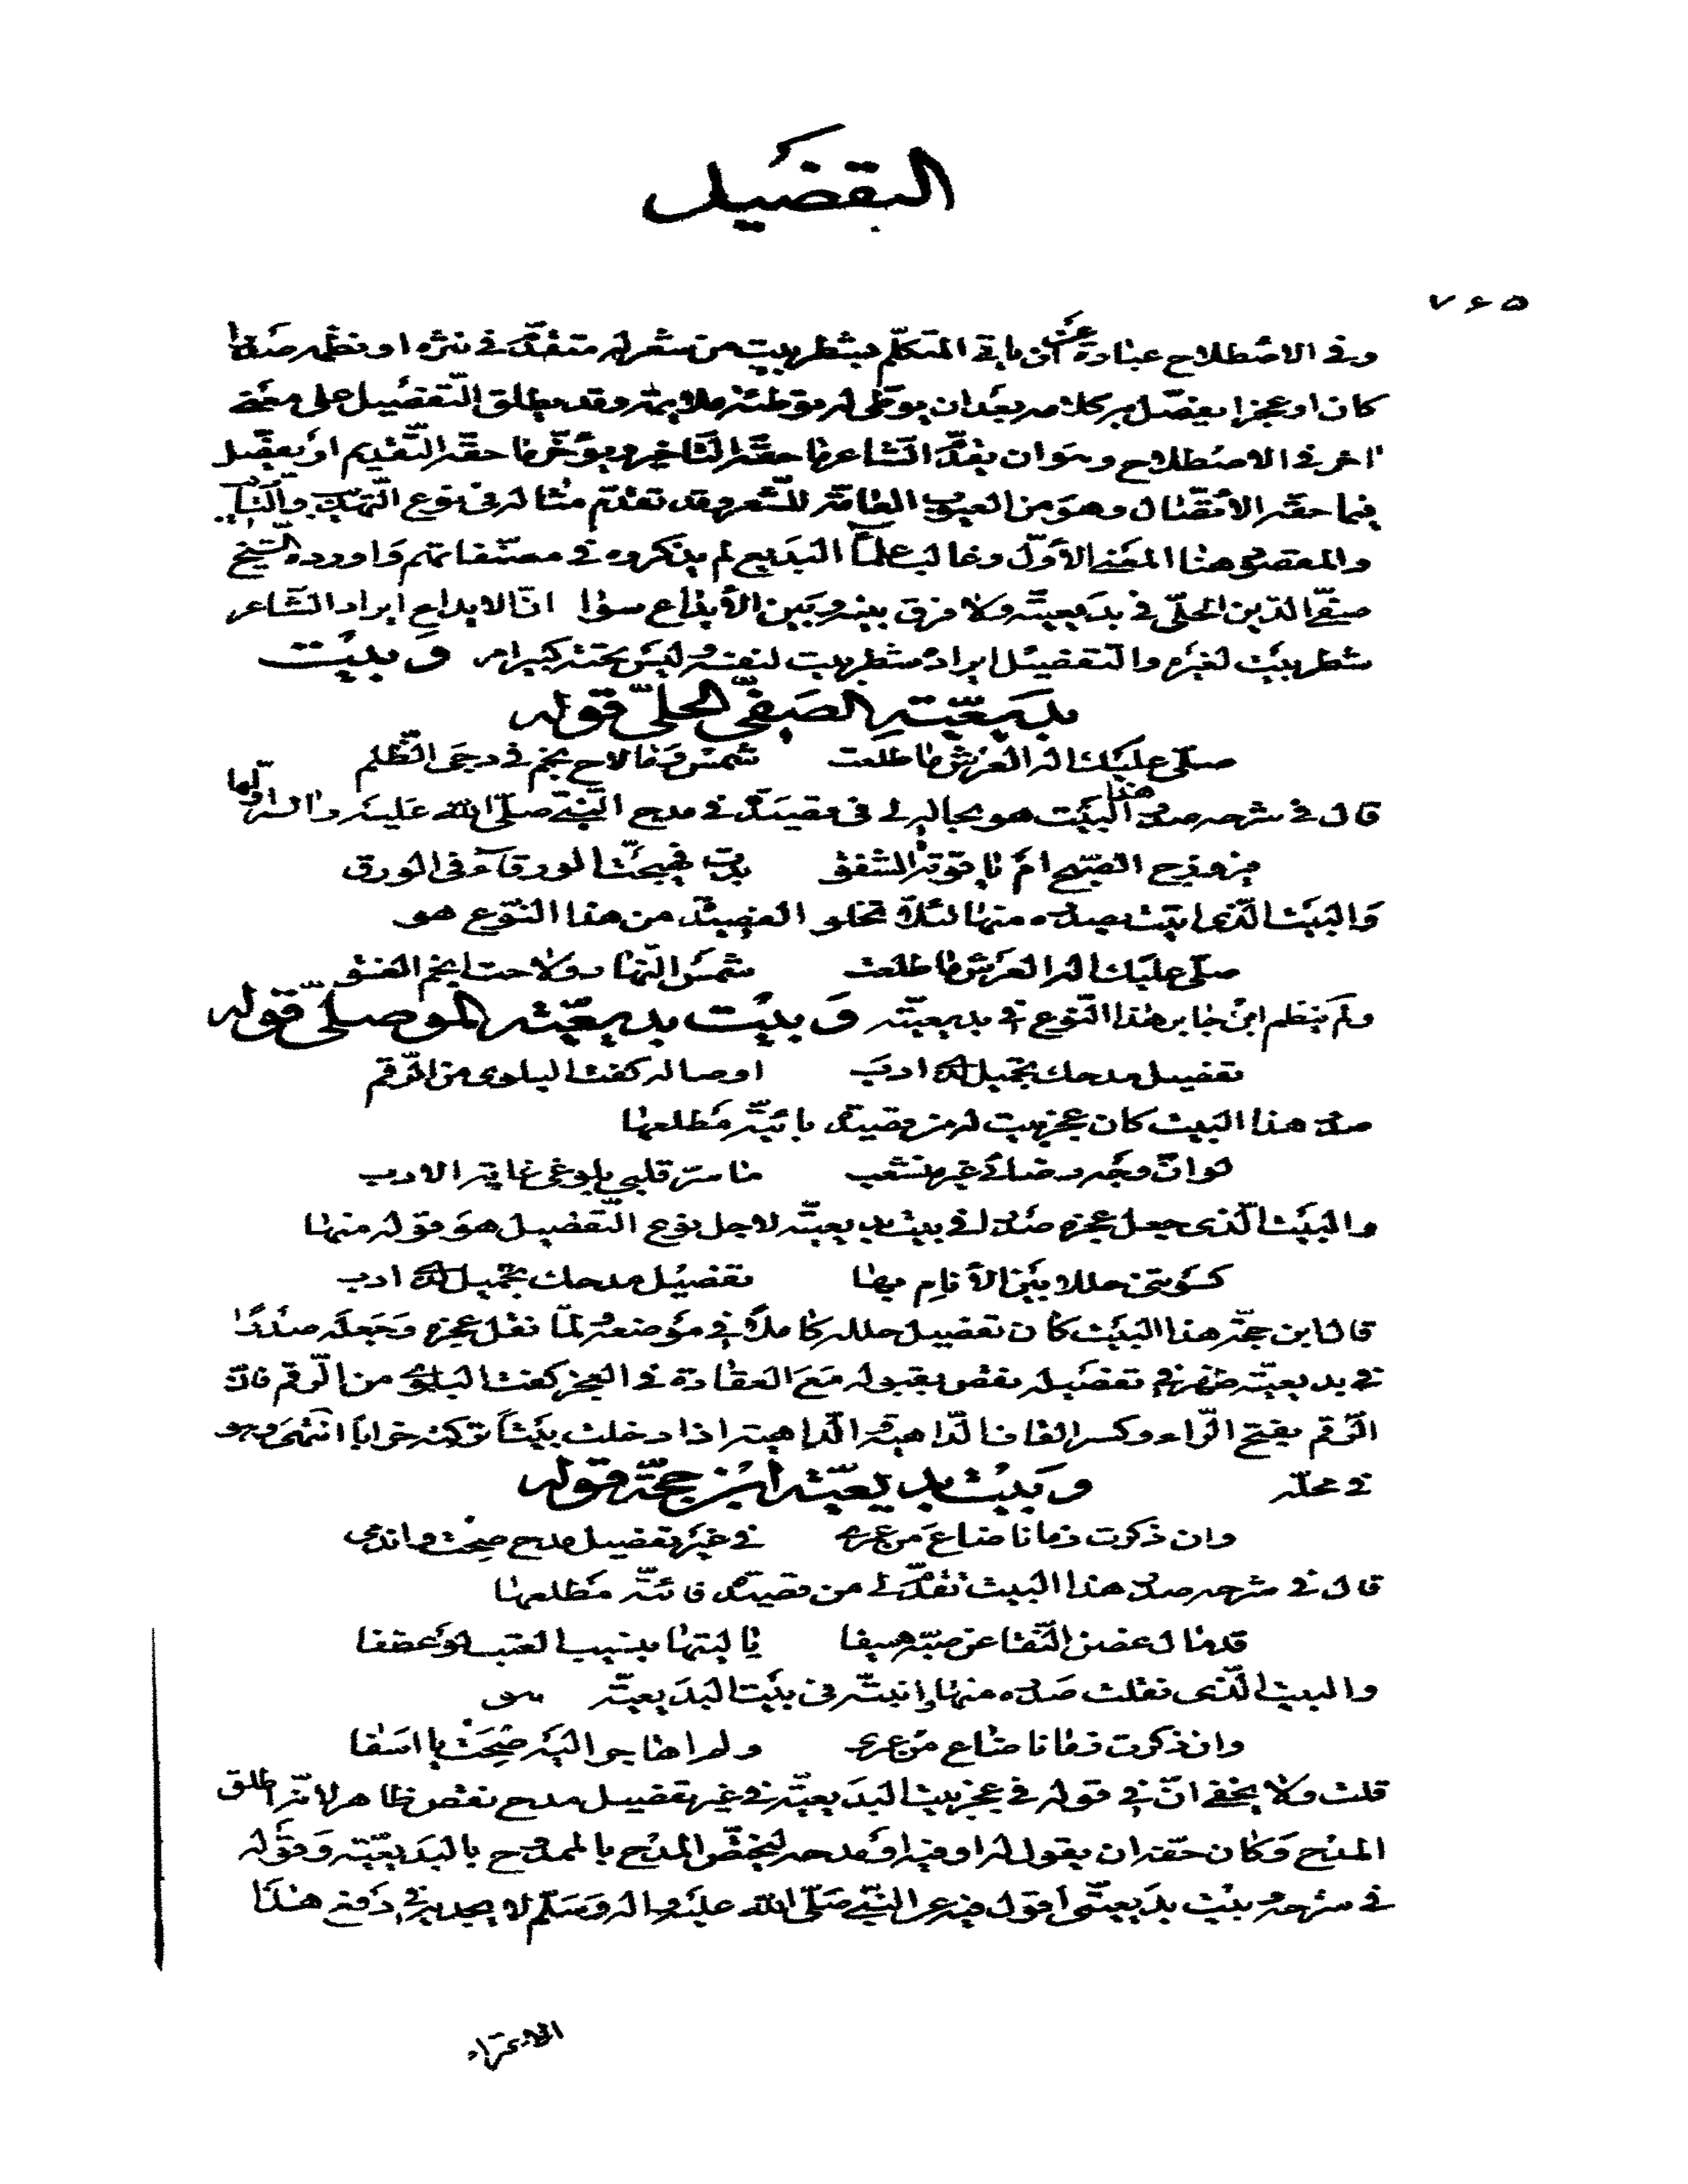 التفضيل
٧٤٥
وفي الاصطلاح عبارة عن ان ياتي المتكلّم بشطر بيت من شعر له متقدّم في نثره او نظمه صدرا
كان او عجزا يفصّل به كلامه بعد ان يوطّي له توطئة ملايمة وقد يطلق التّفضيل على معنى
اخر في الاصطلاح وهو ان يقدّم الشاعر ما حقّه التّاخير ويؤخّر ما حقّه التّقديم او يفصّل
فيما حقّه الاتّصال وهو من العيوب العامّة للشّعر وقد تقدّم مثاله في نوع التهذيب والتّاديب
والمقصود هنا المعنى الاوّل وغالب علماء البديع لم يذكروه في مصنّفاتهم واورده الشيخ
صفيّ الدّين الحلّي في بديعيّته ولا فرق بينه وبين الايداع سوا انّ الايداع ايراد الشّاعر
شطر بيت لغيره والتفضيل ايراده شطر بيت لنفسه وليس تحته كبير امر وبيت
بديعيّته الصفيّ الحلّيّ قوله
صلّى عليك اله العرش ما طلعت شمس وما لاح نجم في دجى الظّلم
قال في شرحه صدر هذا البيت هو بحاله لي في قصيدة في مدح النّبيّ صلّى الله عليه واله اوّلها
فيروزج الصّبح ام ياقوتة الشفق بدت فهيجت الورقاء في الورق
والبيت الّذي اتيت بصدره منها لئلا تخلو القصيدة من هذا النّوع هو
صلّى عليك اله العرش ما طلعت شمس النّهار ولاحت انجم الغسق
ولم ينظم ابن جابر هذا النّوع في بديعيّته وبيت بديعيّته الموصلّي قوله
تفضيل مدحك تجميل لذي ادب اوصاله كفت البلوى من الرّقم
صدر هذا البيت كان عجز بيت له من قصيدة بائيّة مطلعها
لو انّ وجه رضائي غير منتقب ما سرّ قلبي بلوغي غاية الادب
والبيت الّذي جعل عجزه صدرا في بيت بديعيّته لاجل نوع التّفضيل هو قوله منها
كسوتني حللا بين الانام بها تفضيل مدحك تجميل لذي ادب
قال ابن حجّة هذا البيت كان تفضيل حلله كاملا في موضعه لمّا نقل عجزه وجعله صدرًا
في بديعيّته ظهر في تفضيله نقص بقبوله مع العقادة في العجز كفت البلوى من الرّقم فان
الرّقم بفتح الرّاء وكسر القاف الدّاهية الدّاهية اذا دخلت بيتاً تركته خراباً انتهى وهو
في محلّه وبيت بديعيّة ابن حجّة قوله
وان ذكرت زمانا ضاع من عمري في غير تفضيل مدح صحت واندمي
قال في شرحه صدر هذا البيت تقدّم لي من قصيدة فائيّة مطلعها
قد مال غصن النّقا عن صبّه هيفا يا ليتها بنسيم العتب لو عطفا
والبيت الّذي نقلت صدره منها واثبتّه في بيت البديعيّة هو
وان ذكرت زمانا ضاع من عمري ولم اهاجر اليه صحت يا اسفا
قلت ولا يخفى انّ في قوله في عجز بيت البديعيّة في غير تفضيل مدح نقص ظاهر لانّه اطلق
المدح وكان حقّه ان يقول له او فيه او مدحه ليختصّ المدح بالممدوح بالبديعيّة وقوله
في شرحه بيت بديعيّتي اقول فيه عن النّبيّ صلّى الله عليه واله وسلّم لا يجديه في دفع هذا
الايراد